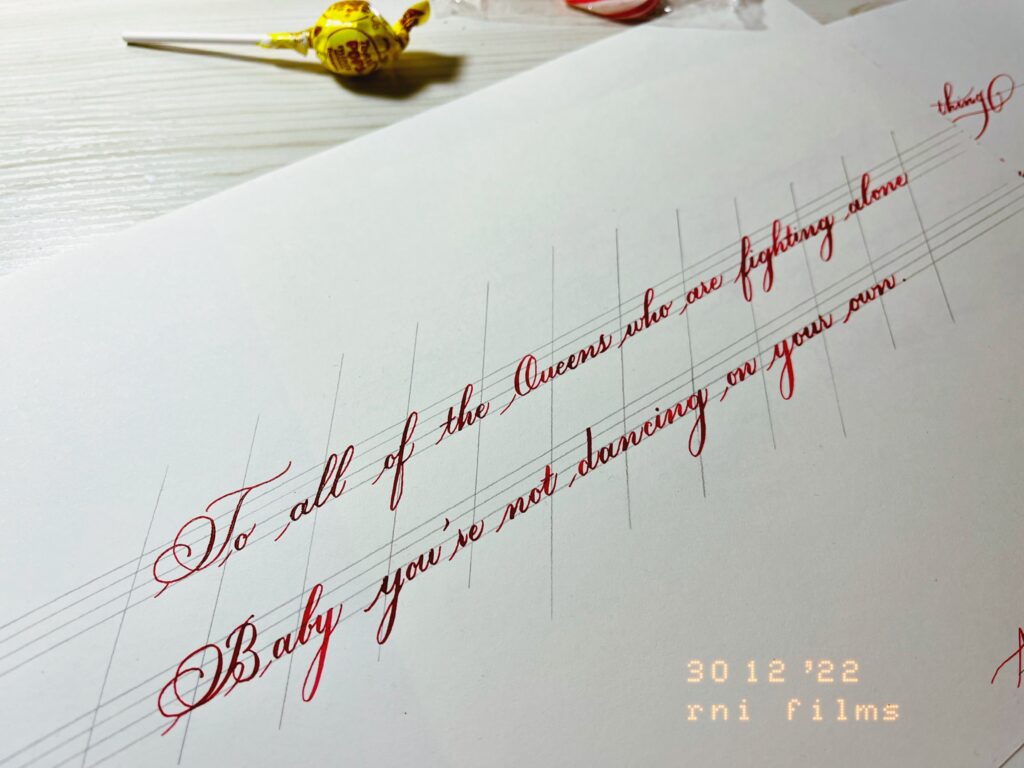 thing
To all of the Queens who are fighting alone
Baby you're not dancing on your own.
30 12 '22
rni films